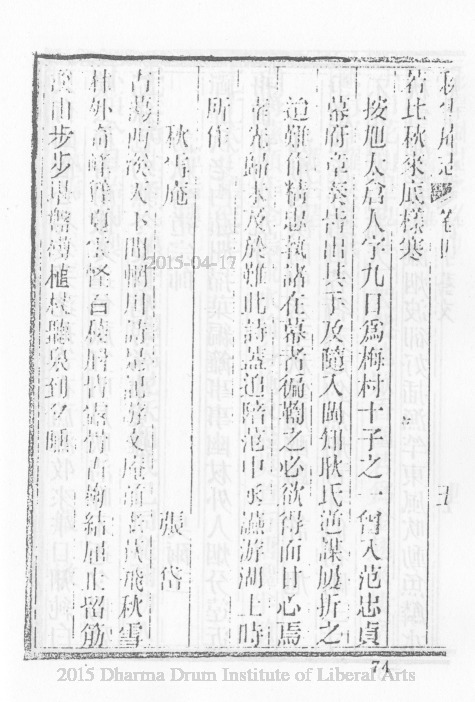 秋雪庵志 卷四 五
若比秋來底樣寒
按旭太倉人字九日爲梅村十子之一曾入范忠貞
幕府章奏皆出其手及隨入閩知耿氏逆謀屢折之
迨難作精忠執諸在幕者徧鞫之必欲得而甘心焉
先歸未及於難此詩蓋追陪范中丞讌游湖上時
所作
秋雪庵 張岱
古蕩西溪天下聞輞川詩是記游文庵前蘆荻飛秋雪
林外奇峰
怪石
骨古梅結屈止留筋
溪山步步堪盤礴植杖聽泉到夕曛
2015-04-17
74
2015 Dharma Drum Institute of Liberal Arts